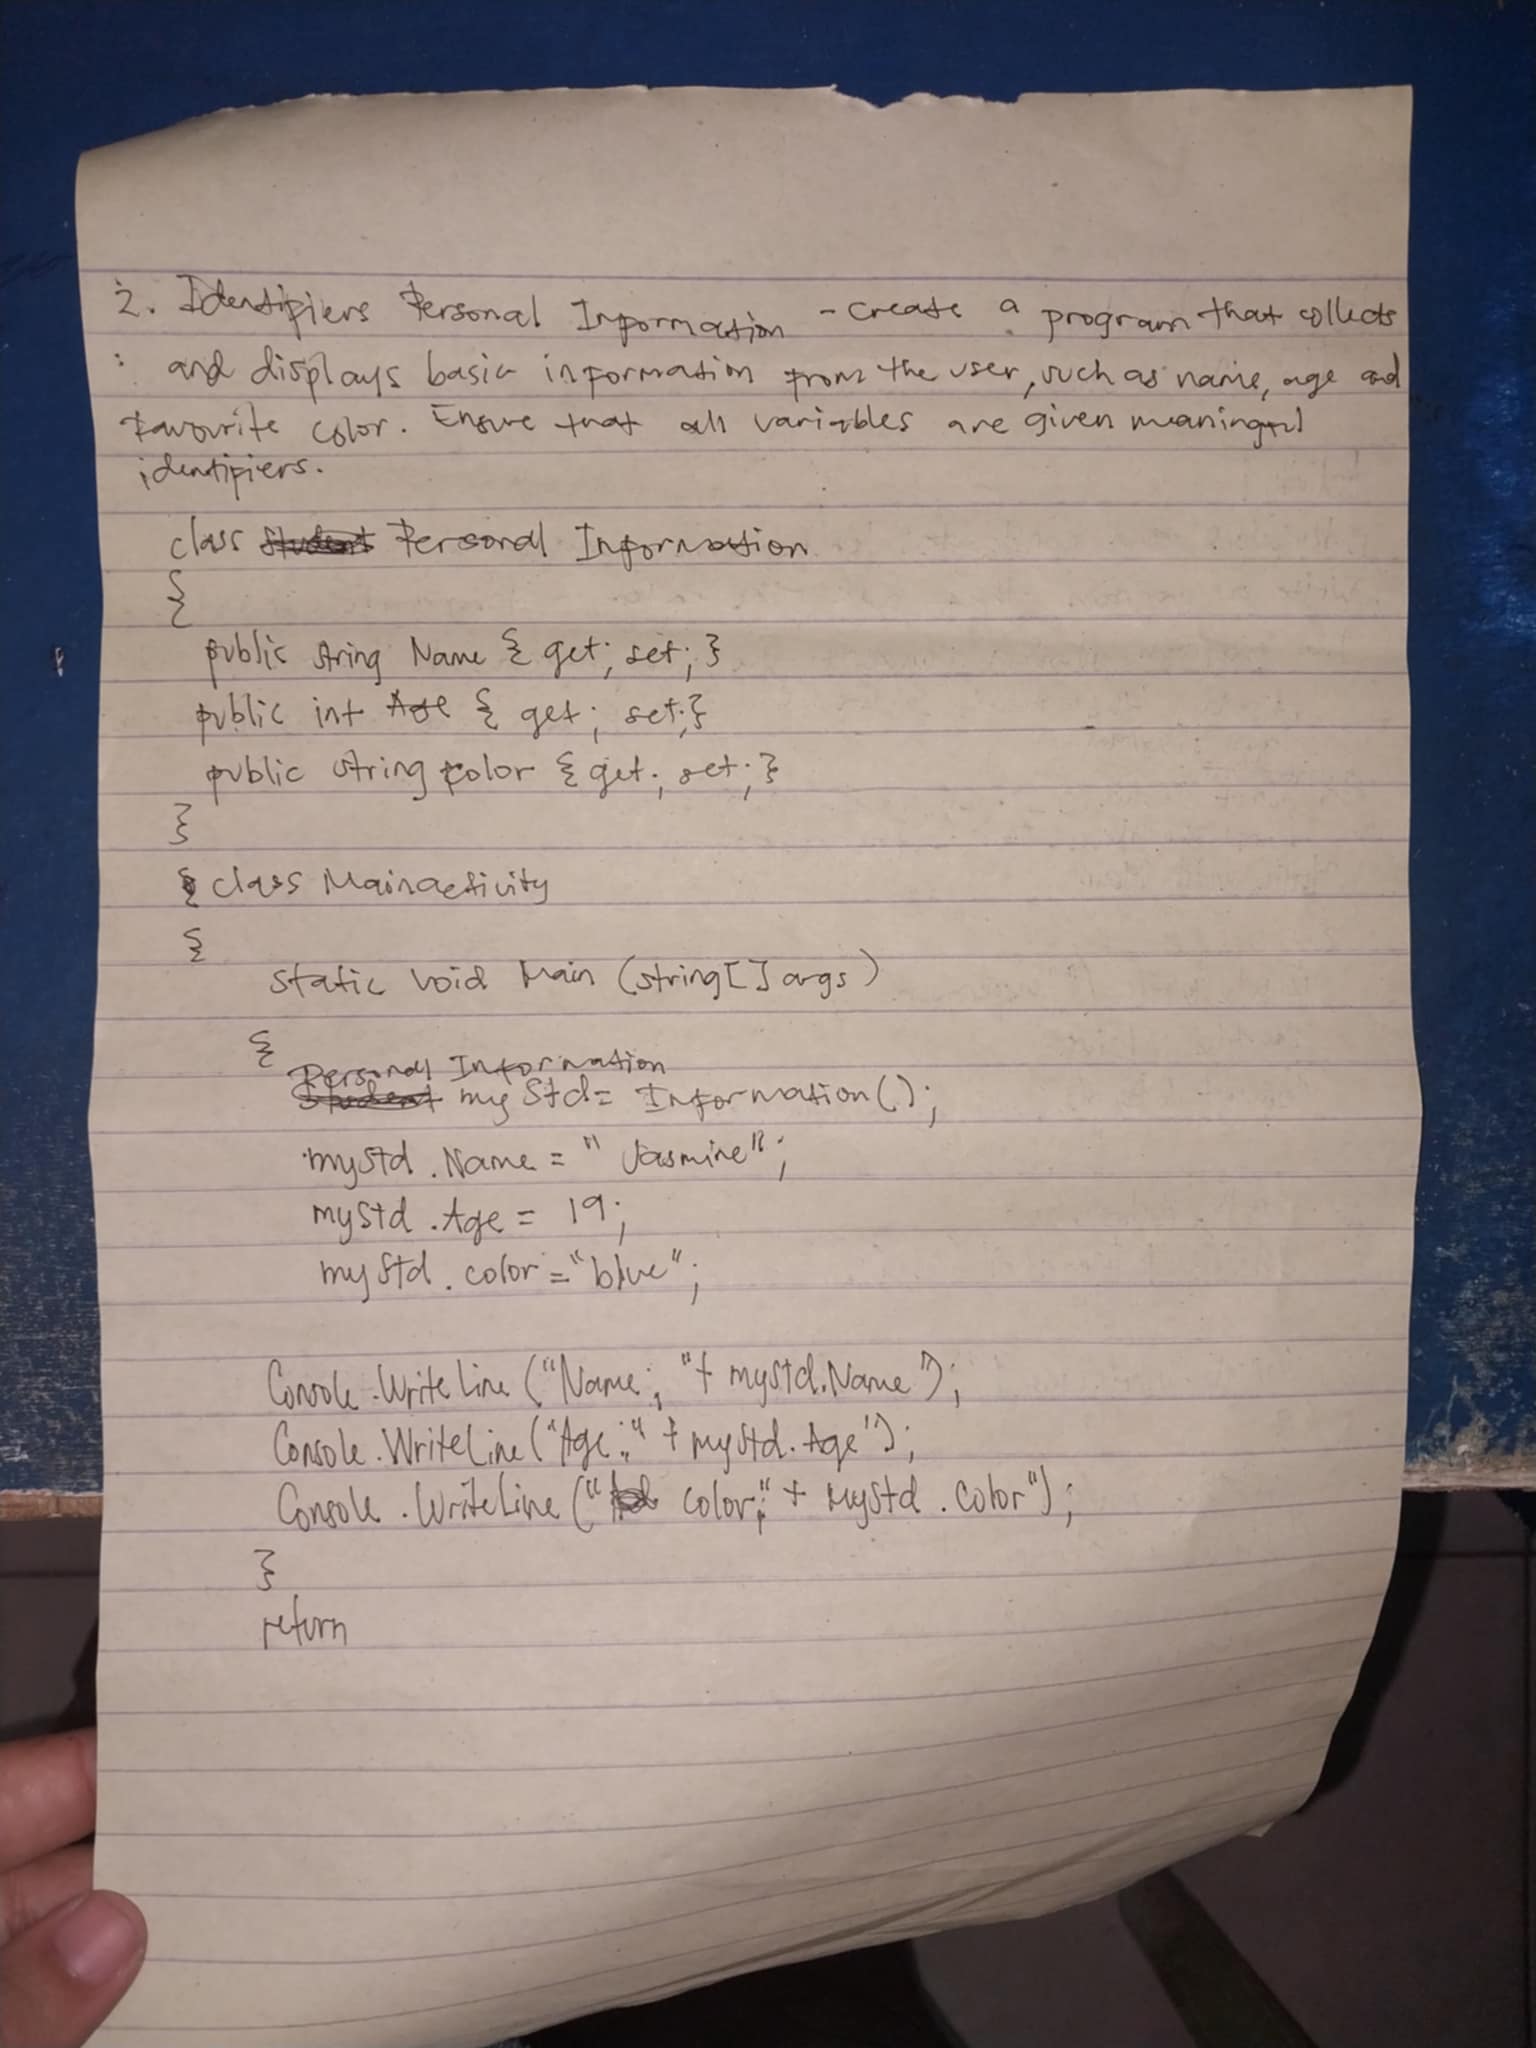 2. Identifiers Personal Information - create a program that collects
: and displays basic information from the user, such as name, age and
Favourite color. Ensure that all variables are given meaningful
identifiers.
class Personal Information
{
public string Name { get; set; }
public int Age { get; set; }
public string color { get; set; }
}
class Mainactivity
{
static void Main (string[] args)
{
Personal Information
my Std = Information();
mystd.Name = "Jasmine";
mystd.Age = 19;
mystd.color = "blue";
Console.WriteLine ("Name; "+ mystd.Name");
Console.WriteLine ("Age;" + mystd.Age");
Console.WriteLine (" color;" + Mystd.color");
}
return